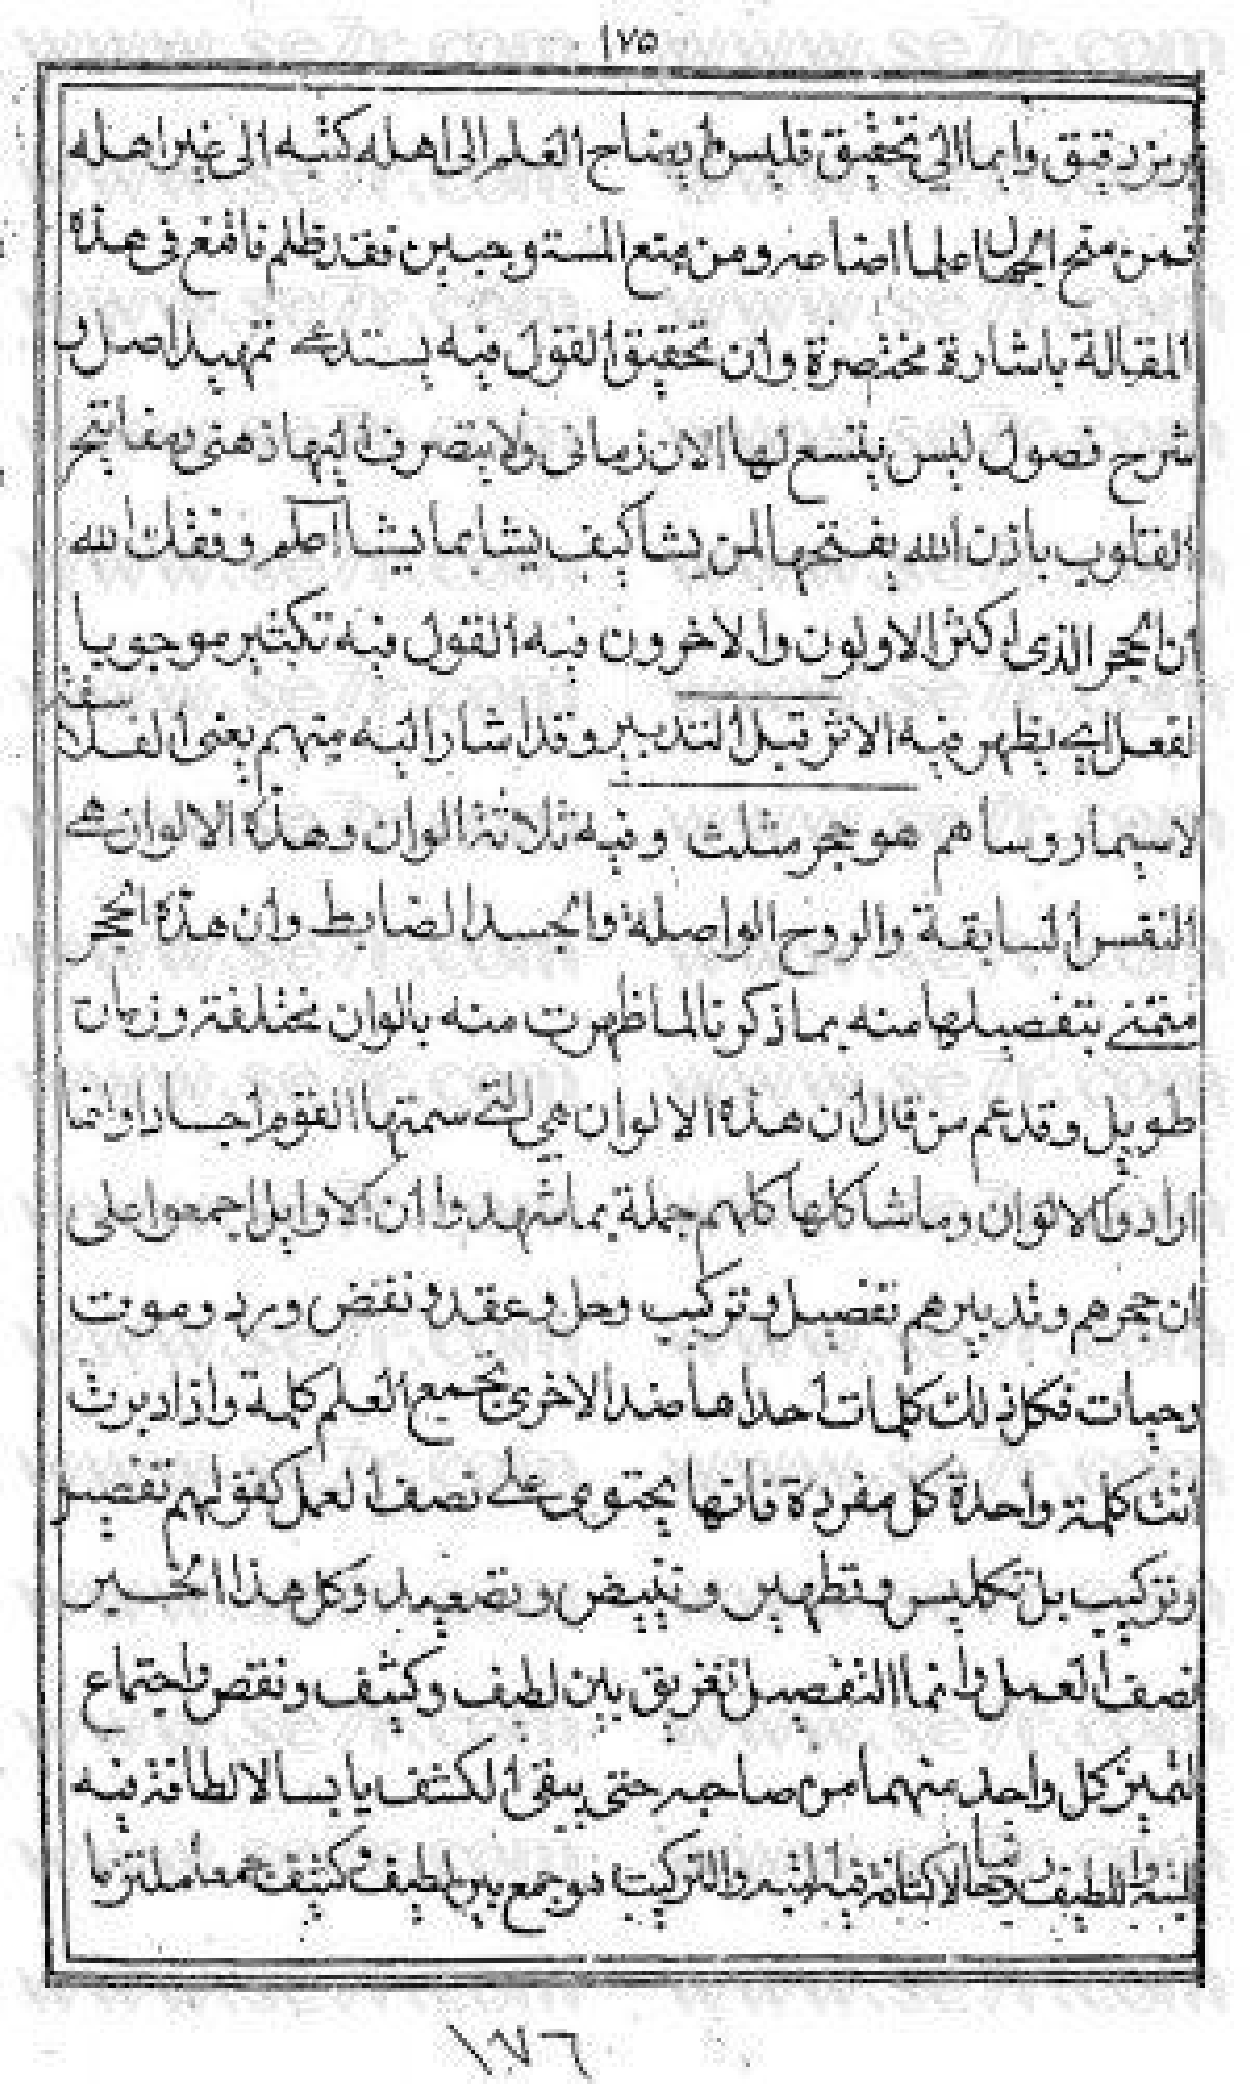 ١٧٥
ورمز دقيق وايما الي تحقيق فليس ايضاح العلم الى اهله كشبه الى غير اهله
فمن منح الجهال علما اضاعه ومن منع المستوجبين فقد ظلم فاقنع فى هذه
المقالة باشارة مختصرة وان تحقيق القول فيه يستدعى تمهيد اصل و
شرح فصول ليس يتسع لها الان زمانى ولا يتصرف اليها ذهنى ومفاتيح
القلوب باذن الله يفتحها لمن يشا كيف يشا بما يشا اعلم وفقك الله
ان الحجر الذى اكثر الاولون والاخرون فيه القول فيه تكثير موجود با
لفعل اى يظهر فيه الاثر قبل التدبير وقد اشار اليه منهم يعنى الفلاسفة
لاسيما روساهم هو حجر مثلث وفيه ثلاثة الوان وهذه الالوان هى
النفس السابقة والروح الواصلة والجسد الضابط وان هذه الحجر
متمنى بتفصيلها منه بما ذكرنا لما ظهرت منه بالوان مختلفة وزمان
طويل وقد عم من قال ان هذه الالوان هى التى سمتها القوم اجسادا وانما
ارادوا الالوان وما شاكلها كلهم جملة بما شهدوا ان الاوايل اجمعوا على
ان حجرهم وتدبيرهم تفصيل وتركيب وحل وعقد ونقض ورد وموت
وحيات فكل ذلك كلمات احداها ضد الاخرى تجمع العلم كلمة واذا دبرت
انت كلمة واحدة كل مفردة فانها يحتوى على نصف العمل كقولهم تفصيل
وتركيب بل تكليس وتطهير وتبييض وتصعيد وكل هذا الخبير
نصف العمل وانما التفصيل تفريق بين لطيف وكثيف ونقص واجتماع
لتميز كل واحد منهما من صاحبه حتى يبقى الكشف يابسا لا لطافة فيه
البتة واللطيف لا كثافة فيه البته والتركيب هو جمع بين لطيف وكثيف جمعا ملتزما
١٧٦